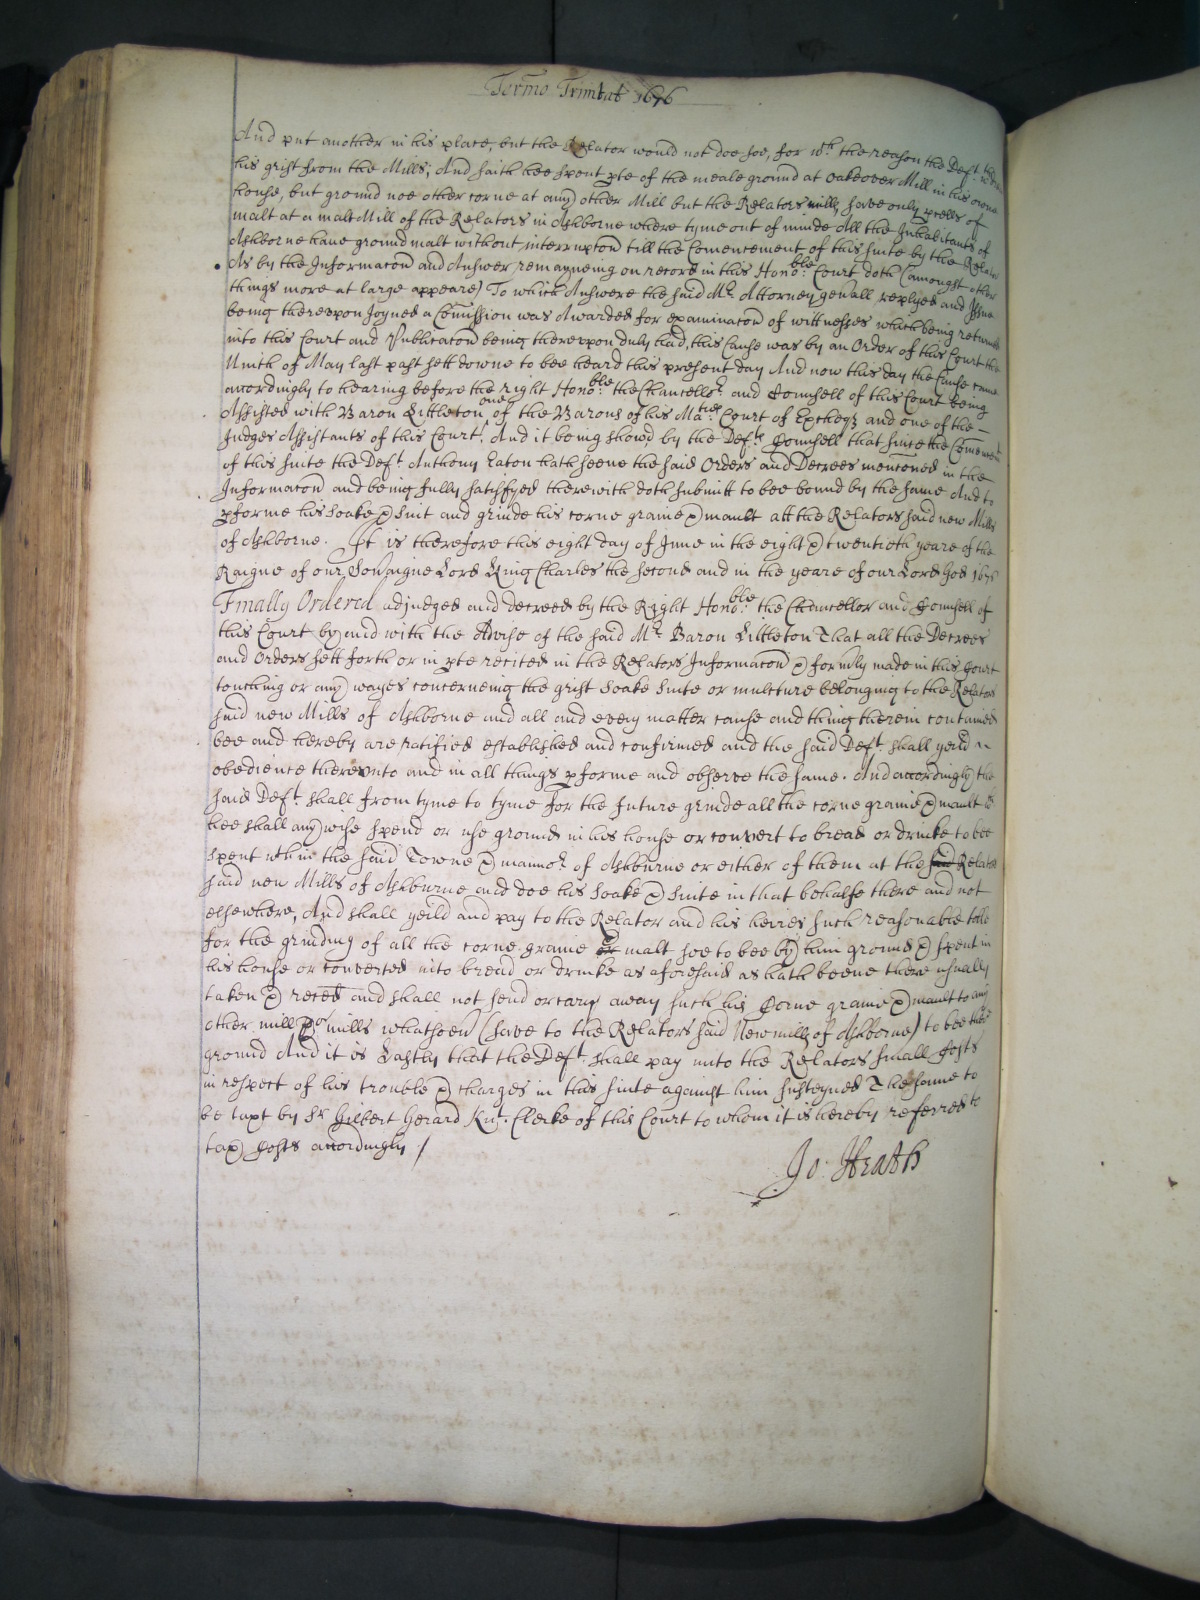 Termo Trinitat 1676
And put another in his place, but the Relator would not doe soe, for wch the reason the Deft
his grist from the Mills; And saith hee spent pte of the meale ground at Oakeover Mill in his owne
house, but ground noe other corne at any other Mill but the Relators mills, save only pcells of
malt at a malt Mill of the Relators in Ashborne where tyme out of minde All the Inhabitants of
Ashborne haue ground malt without interrupcon till the Comencement of this suite by the Relator
As by the Informacon and Answer remayneing on record in this Honoble: Court doth (amongst other
things more at large appeare) To which Answere the said Mr. Attorney genall replyed and Issue
being therevpon Joyned a Comission was Awarded for examinacon of wittnesses which being returned
into this Court and Publicacon being therevpon duly had, this Cause was by an Order of this Court the
of May last past sett downe to bee heard this present day And now this day the Cause came
accordingly to hearing before the right Honoble: the Chancellor. and Counsell of this Court being
Assisted with Baron Littleton one of the Barons of his Maties Court of Excheqr and one of the
Judges Assistants of this Court, And it being showd by the Defts Counsell that since the Comencemt
of this suite the Deft. Anthony Eaton hath seene the said Orders and Decrees menconed in the
Informacon and being fully satisfyed therewith doth submitt to bee bound by the same And to
pforme his soake & suit and grinde his corne graine & mault att the Relators said new Mills
of Ashborne. It is therefore this eight day of June in the eight & twentieth yeare of the
Raigne of our Sovaigne Lord King Charles the second and in the yeare of our Lord God 1676
Finally Ordered adjudged and decreed by the Right Honoble: the Chancellor and Counsell of
this Court by and with the Advise of the said Mr. Baron Littleton That all the Decrees
and Orders sett forth or in pte recited in the Relators Informacon & formly made in this Court
touching or any wayes concerneing the grist Soake suite or multure belonging to the Relators
said new Mills of Ashborne and all and every matter cause and thing therein contained
bee and hereby are ratified established and confirmed and the said Deft. shall yeild
obedience therevnto and in all things pforme and observe the same. And accordingly the
said Deft. shall from tyme to tyme for the future grinde all the corne graine & mault
hee shall any wise spend or use ground in his house or convert to bread or drinke to bee
spent wth in the said Towne & mannor. of Ashburne or either of them at the said Relators
said new Mills of Ashburne and doe his Soake & suite in that behalfe there and not
elsewhere, And shall yeild and pay to the Relator and his heires such reasonable tolle
for the grinding of all the corne graine or & malt soe to bee by him ground & spent in
his house or converted into bread or drinke as aforesaid as hath beene there usually
taken & reced and shall not send or carry away such his Corne graine & mault to any
other mill or mills whatsoever (save to the Relators said New mills of Ashborne) to bee there
ground And it is Lastly that the Deft. shall pay unto the Relators small Costs
in respect of his trouble & charges in this suite against him susteyned The same to
be taxt by Sr Gilbert Gerard Knt. Clerke of this Court to whom it is hereby referred to
tax Costs accordingly /
Jo: Heath